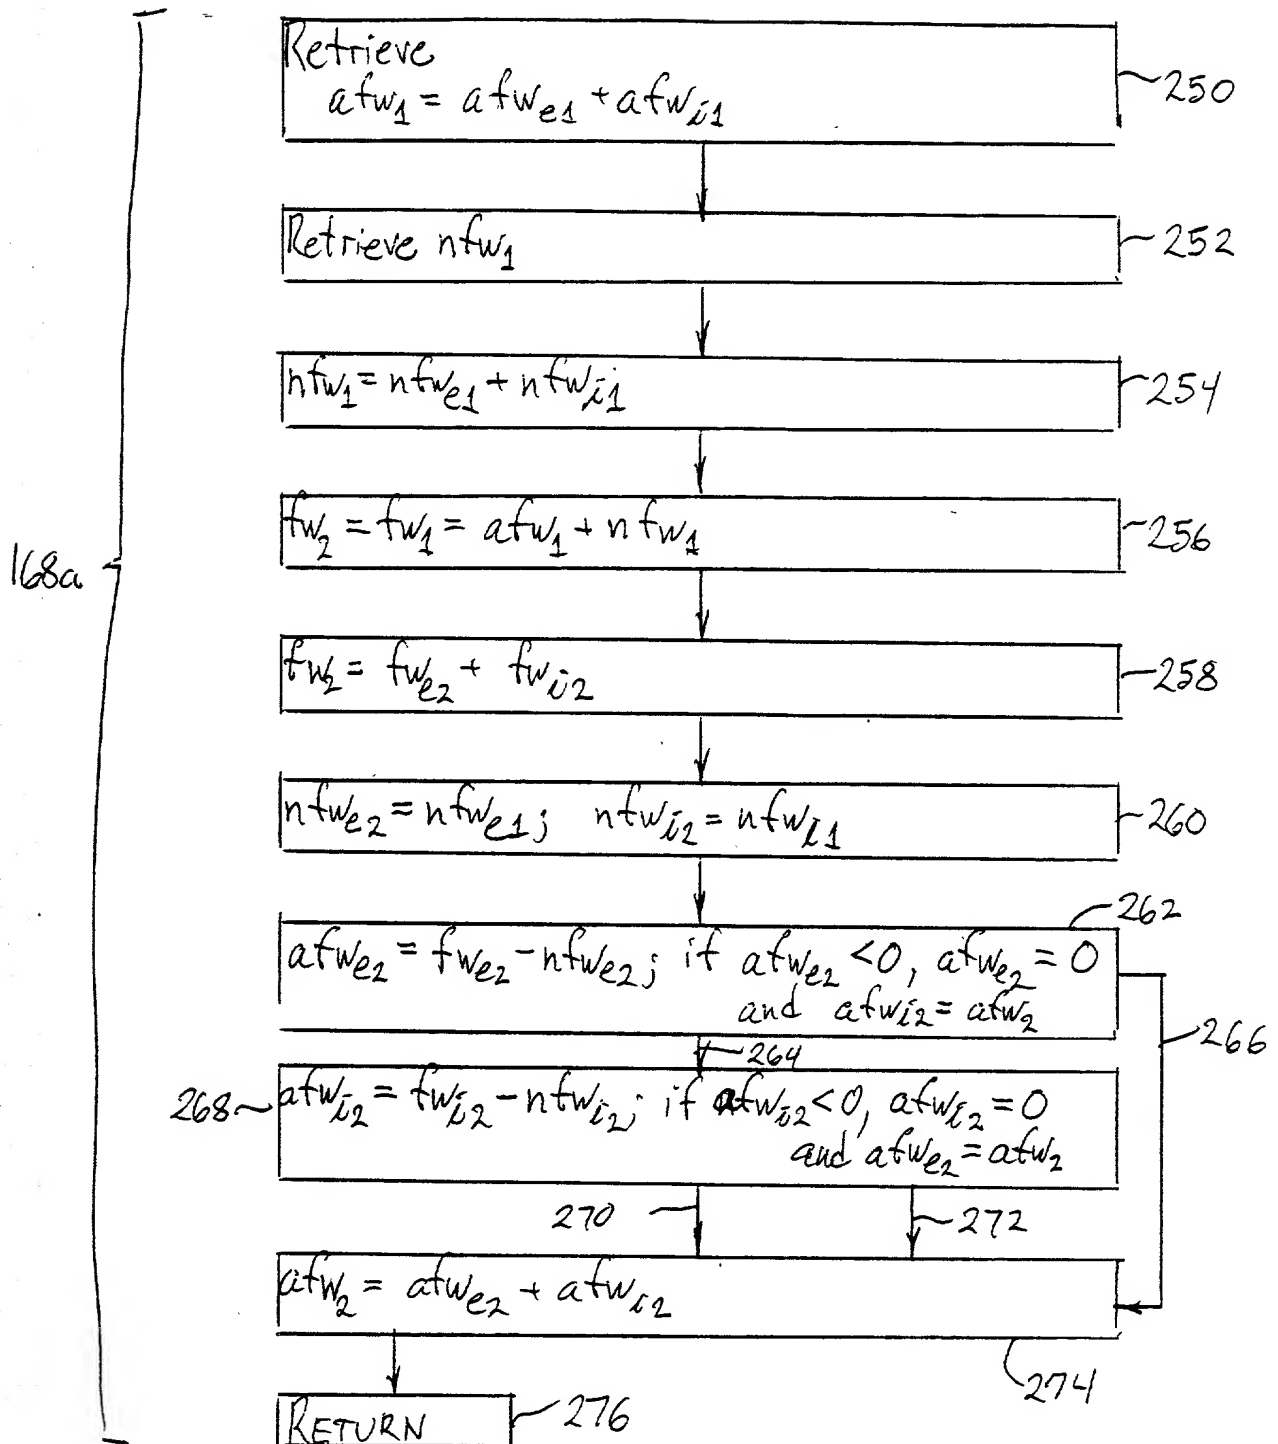 Retrieve
afw₁ = afwₑ₁ + afwᵢ₁
250
Retrieve nfw₁
252
nfw₁ = nfwₑ₁ + nfwᵢ₁
254
fw₂ = fw₁ = afw₁ + nfw₁
256
168a
fw₂ = fwₑ₂ + fwᵢ₂
258
nfwₑ₂ = nfwₑ₁; nfwᵢ₂ = nfwᵢ₁
260
262
afwₑ₂ = fwₑ₂ - nfwₑ₂; if afwₑ₂ < 0, afwₑ₂ = 0
and afwᵢ₂ = afw₂
266
264
268
afwᵢ₂ = fwᵢ₂ - nfwᵢ₂; if afwᵢ₂ < 0, afwᵢ₂ = 0
and afwₑ₂ = afw₂
270
272
afw₂ = afwₑ₂ + afwᵢ₂
274
RETURN
276